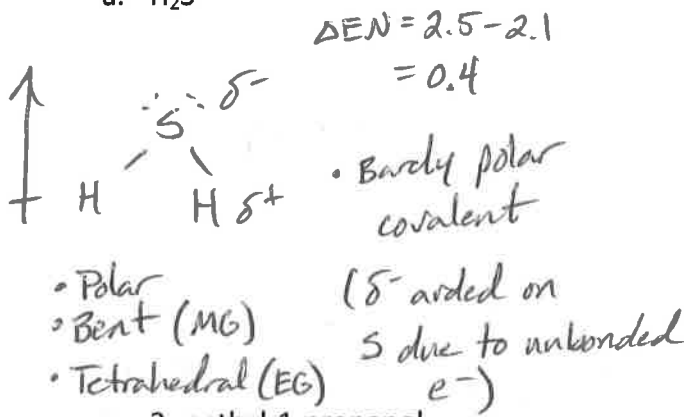 a. H₂S
ΔEN = 2.5 - 2.1
= 0.4
S δ-
H H δ+
• Barely polar
covalent
• Polar
• Bent (MG)
• Tetrahedral (EG)
(δ- added on
S due to unbonded
e-)